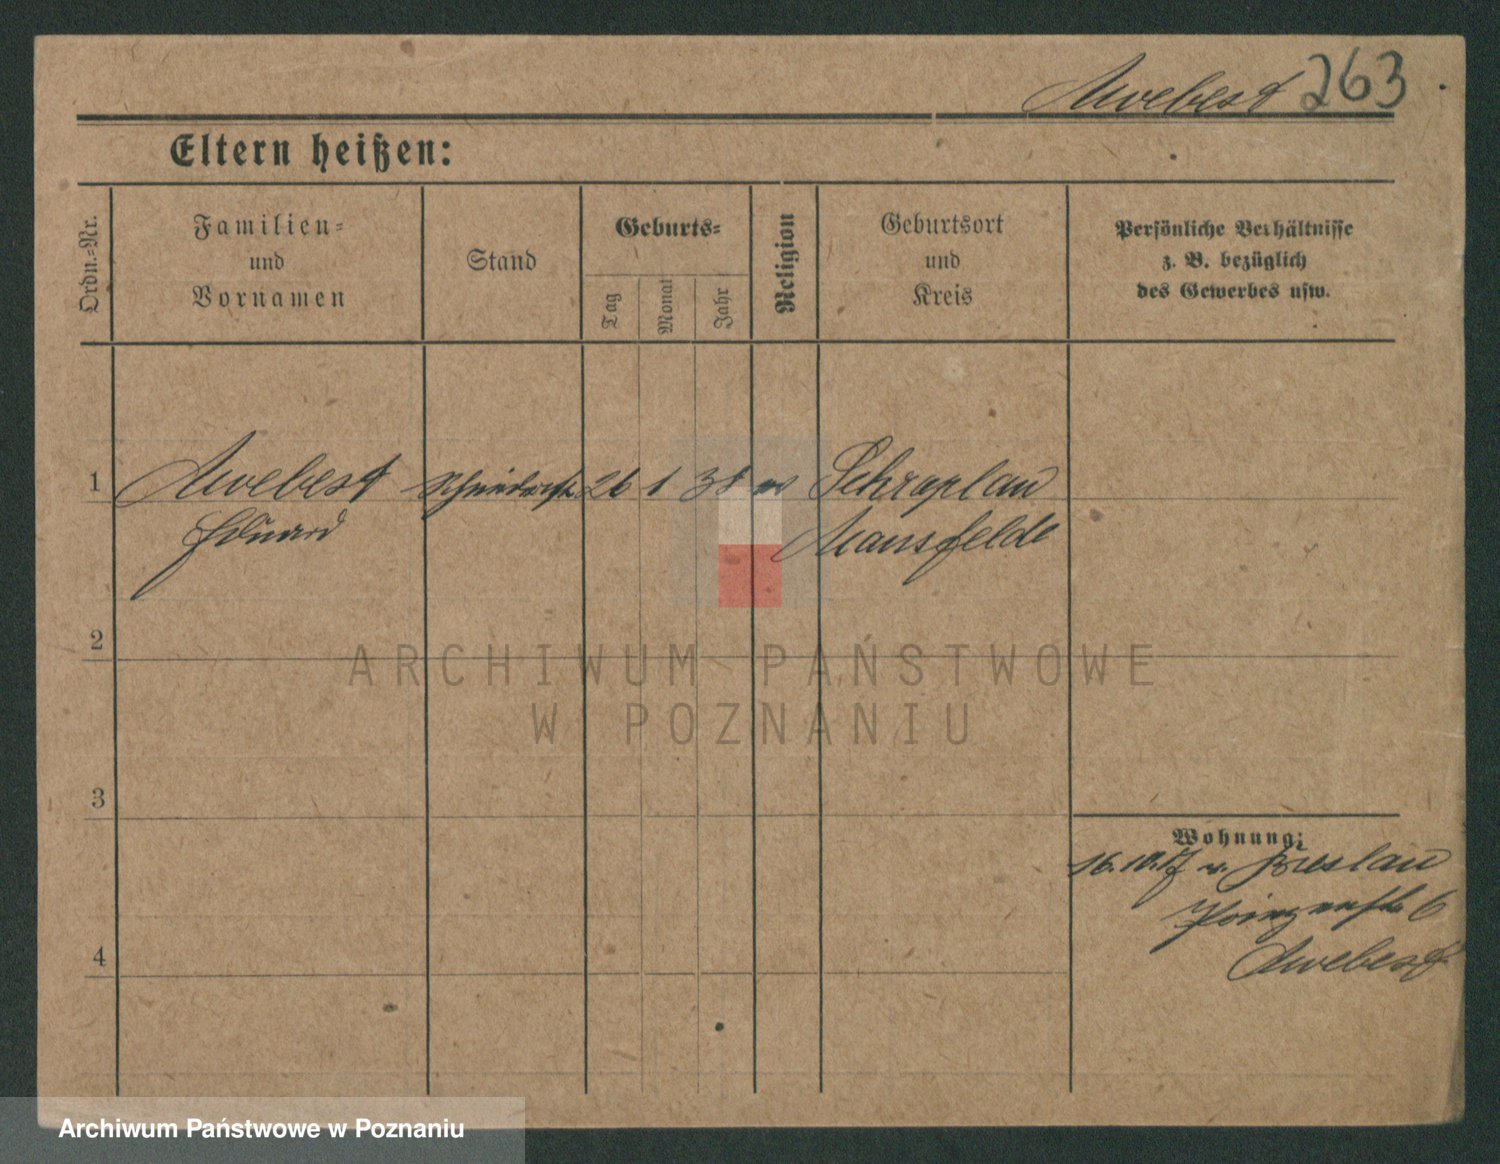 Awebest 263
Eltern heißen:
Ordn.-Nr.
Familien-
und
Vornamen
Stand
Geburts-
Tag
Monat
Jahr
Religion
Geburtsort
und
Kreis
Persönliche Verhältnisse
z. B. bezüglich
des Gewerbes usw.
1 Awebest 26 1 38 ev Schraplau
Eduard Mansfelde
2
3
4
Wohnung:
16.10.17 v. Breslau
6
Awebest
ARCHIWUM PAŃSTWOWE
W POZNANIU
Archiwum Państwowe w Poznaniu